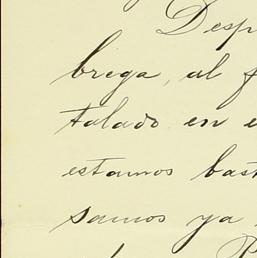 Desp
brega, al f
talado en e
estamos bast
samos ya